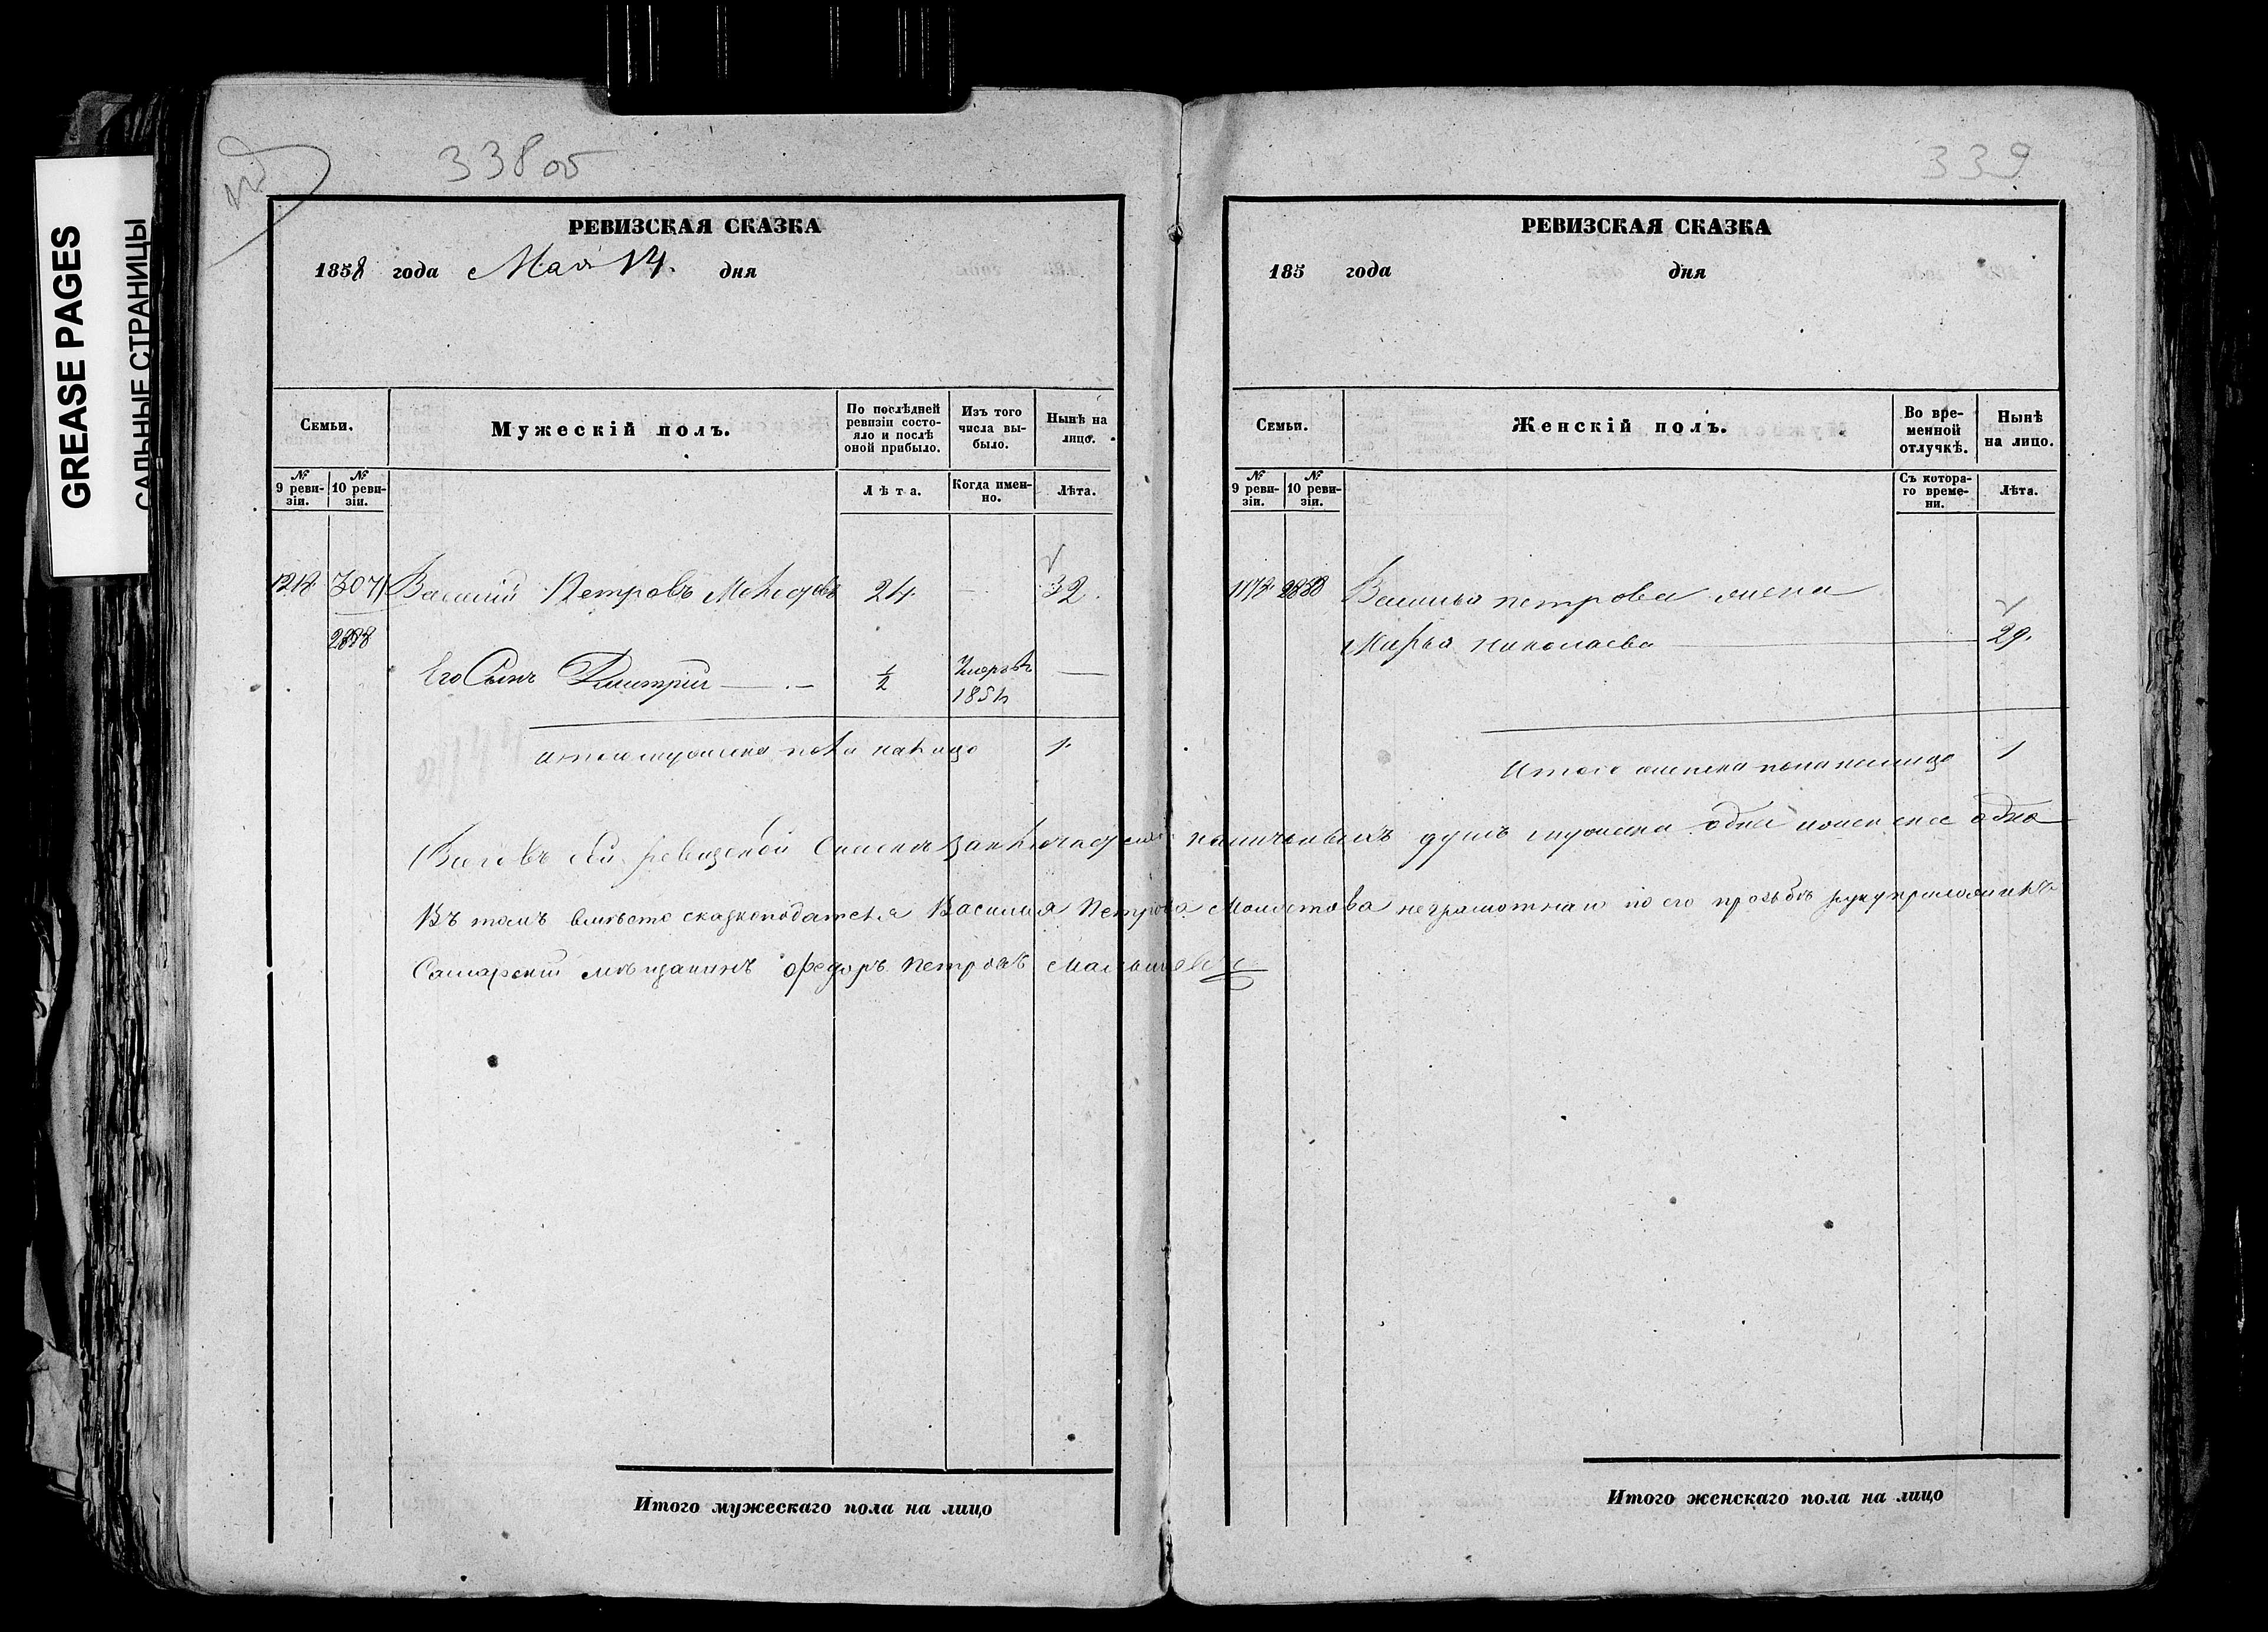 GREASE PAGES
САЛЬНЫЕ СТРАНИЦЫ
338 об
РЕВИЗСКАЯ СКАЗКА
1858 года Мая 14. дня
Семьи.
Мужескiй полъ.
По послѣдней ревизiи состояло и послѣ оной прибыло.
Изъ того числа выбыло.
Нынѣ на лицо.
№ 9 ревизiи.
№ 10 ревизiи.
Лѣта.
Когда именно.
Лѣта.
Василий Петровъ 24 — 32.
2888
Его Сынъ Дмитрий — ½ Умеръ въ 185 —
итого мужска пола налицо 1.
Итого мужескаго пола на лицо
339
РЕВИЗСКАЯ СКАЗКА
185 года дня
Семьи.
Женскiй полъ.
Во временной отлучкѣ.
Нынѣ на лицо.
№ 9 ревизiи.
№ 10 ревизiи.
Съ котораго времени.
Лѣта.
2888 Василья петрова жена
Марья николаева — 29.
Итого женска пола налицо 1
Всего въ сей ревизской наличныхъ душъ мужска одна женска одна
Въ томъ вмѣсто сказкоподателя Василия Петрова неграмотнаго по его прозьбѣ руку приложилъ
Самарский мѣщанинъ федоръ петровъ
Итого женскаго пола на лицо